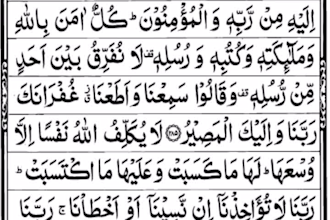 اِلَيْهِ مِنْ رَّبِّهٖ وَ الْمُؤْمِنُوْنَ ؕ كُلٌّ اٰمَنَ بِاللّٰهِ
وَمَلٰٓئِكَتِهٖ وَكُتُبِهٖ وَ رُسُلِهٖ ۟ لَا نُفَرِّقُ بَيْنَ اَحَدٍ
مِّنْ رُّسُلِهٖ ۟ وَقَالُوْا سَمِعْنَا وَ اَطَعْنَا ۗ٭ غُفْرَانَكَ
رَبَّنَا وَ اِلَيْكَ الْمَصِيْرُ ﴿۲۸۵﴾ لَا يُكَلِّفُ اللّٰهُ نَفْسًا اِلَّا
وُسْعَهَا ؕ لَهَا مَا كَسَبَتْ وَعَلَيْهَا مَا اكْتَسَبَتْ ؕ
رَبَّنَا لَا تُؤَاخِذْنَاۤ اِنْ نَّسِيْنَاۤ اَوْ اَخْطَاْنَا ۚ رَبَّنَا